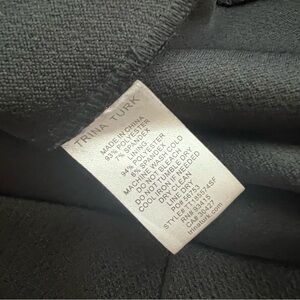 TRINA TURK
MADE IN CHINA
93% POLYESTER
7% SPANDEX
LINING
94% POLYESTER
6% SPANDEX
MACHINE WASH COLD
DO NOT BLEACH
DO NOT TUMBLE DRY
COOL IRON IF NEEDED
DRY CLEAN
LINE DRY
RN# 93415
CA# 30427
trinaturk.com